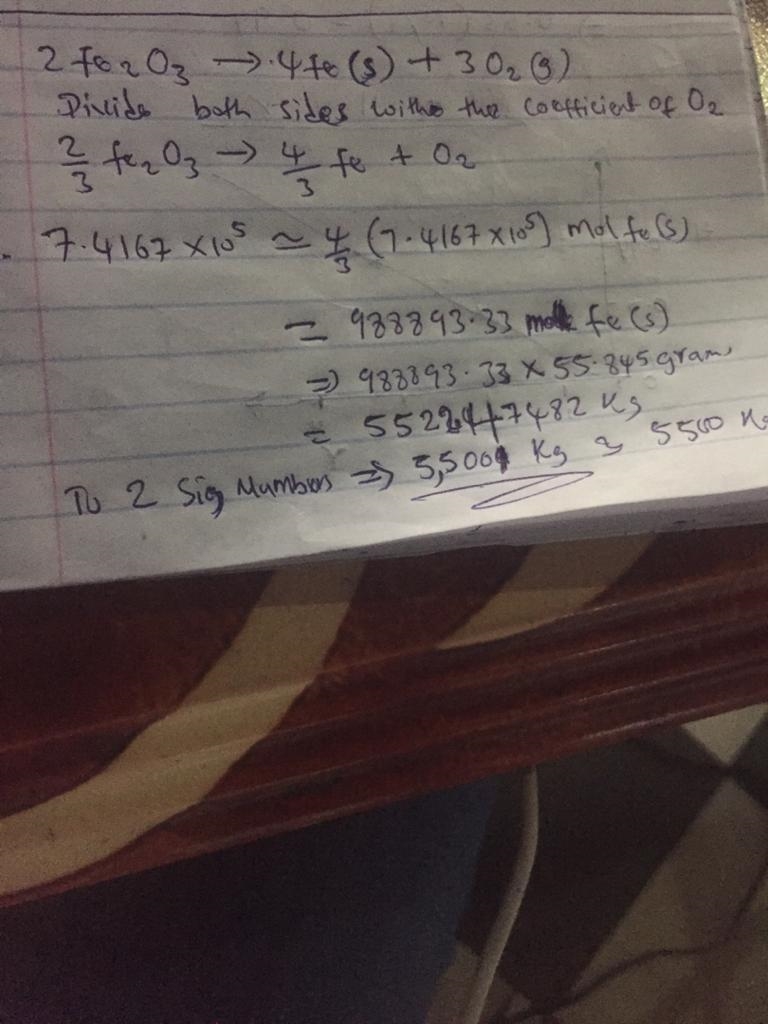 2 Fe2O3 → 4fe (s) + 3 O2 (g)
Divide both sides withe the coefficient of O2
2/3 fe2O3 → 4/3 fe + O2
7.4167 × 10^5 ≃ 4/3 (7.4167 × 10^5) mol fe (s)
= 988893.33 fe (s)
⇒ 988893.33 × 55.845 gram
= Kg
To 2 Sig Numbers ⇒ Kg 5500